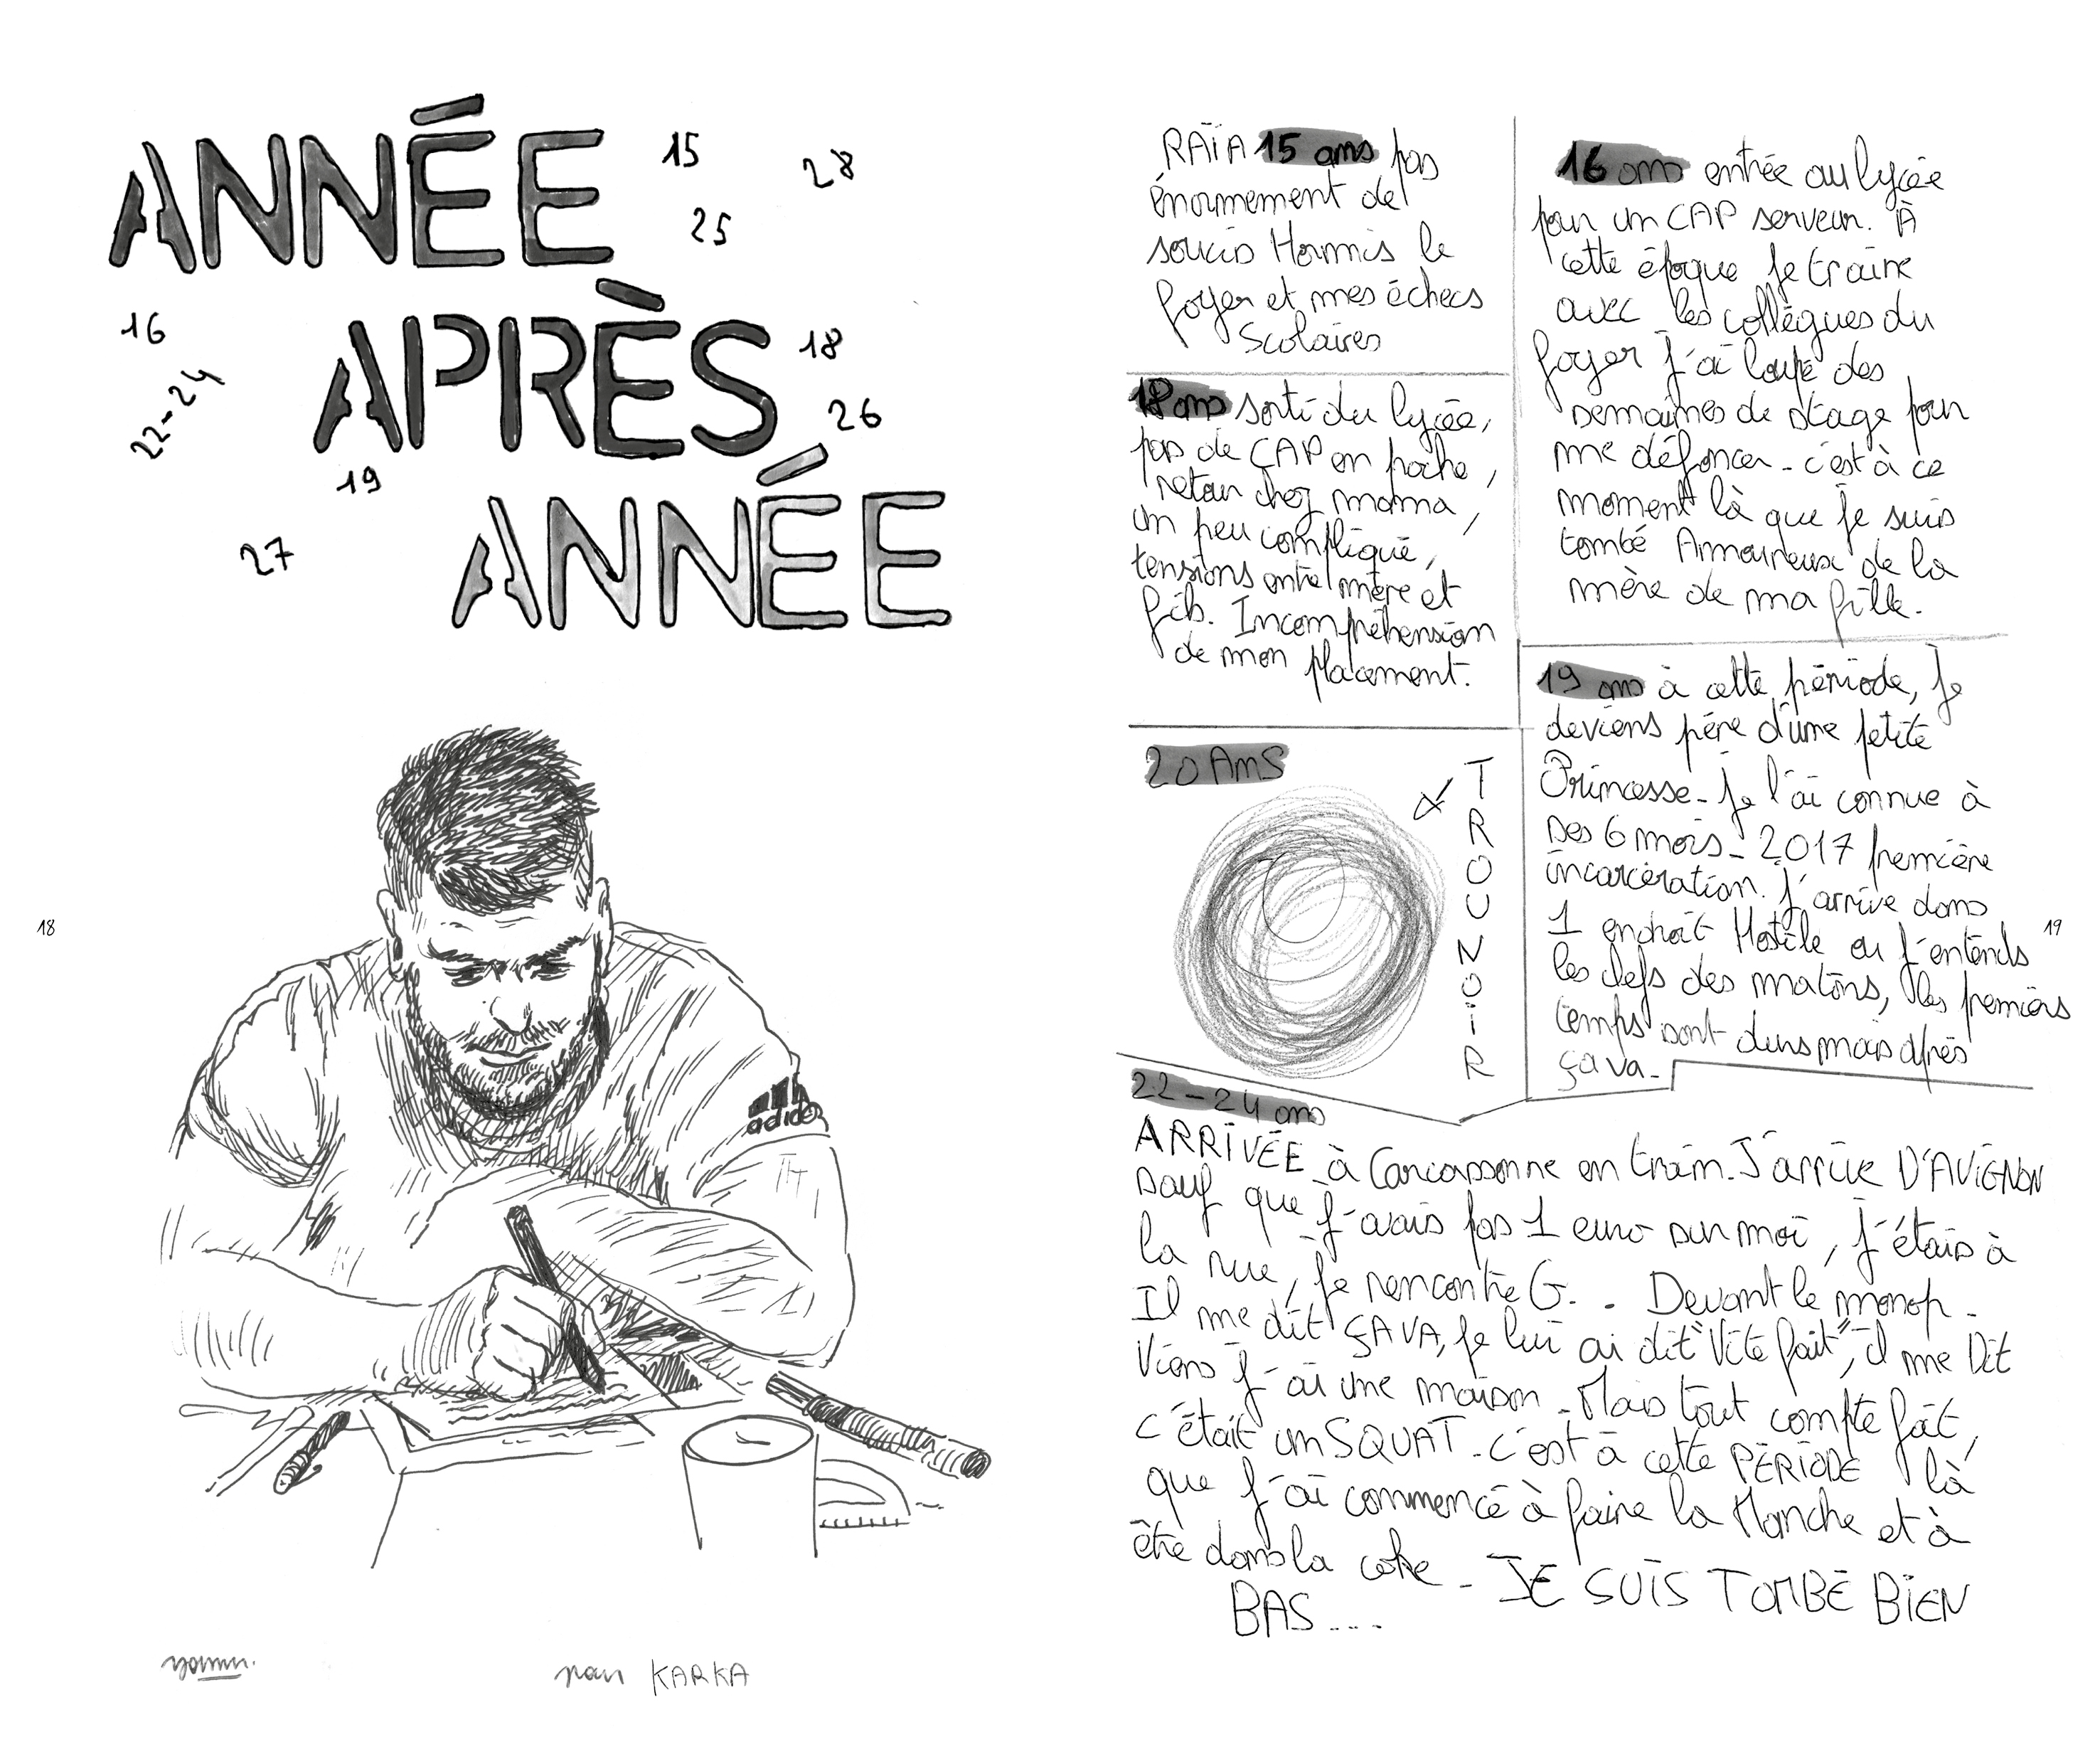 ANNÉE
15
28
25
16
APRÈS
18
22-24
26
19
ANNÉE
27
adidas
18
yann.
par KARKA
RAÏA 15 ans pas
énormement de
soucis Hormis le
foyer et mes échecs
Scolaires
18 ans sorti du lycée,
pas de CAP en poche,
retour chez mama,
un peu compliqué,
tensions entre mère et
fils. Incompréhension
de mon placement.
20 Ans
TROU NOIR
16 ans entrée au lycée
pour un CAP serveur. À
cette époque je traine
avec les collègues du
foyer j'ai loupé des
semaines de stage pour
me défoncer - c'est à ce
moment là que je suis
tombé Amoureux de la
mère de ma fille.
19 ans à cette période, je
deviens père d'une petite
Princesse - je l'ai connue à
ses 6 mois - 2017 première
incarcération. J'arrive dans
1 endroit Hostile ou j'entends
les clefs des matons, les premiers
temps sont durs mais après
ça va -
19
22-24 ans
ARRIVÉE à Carcassonne en train. J'arrive D'AVIGNON
sauf que j'avais pas 1 euro sur moi, j'étais à
la rue, je rencontre G.. Devant le monop -
Il me dit ÇA VA, je lui ai dit "Vite fait", il me Dit
Viens j'ai une maison - Mais tout compte fait,
c'était un SQUAT - c'est à cette PÉRIODE là
que j'ai commencé à faire la Manche et à
être dans la coke - JE SUIS TOMBÉ BIEN
BAS....